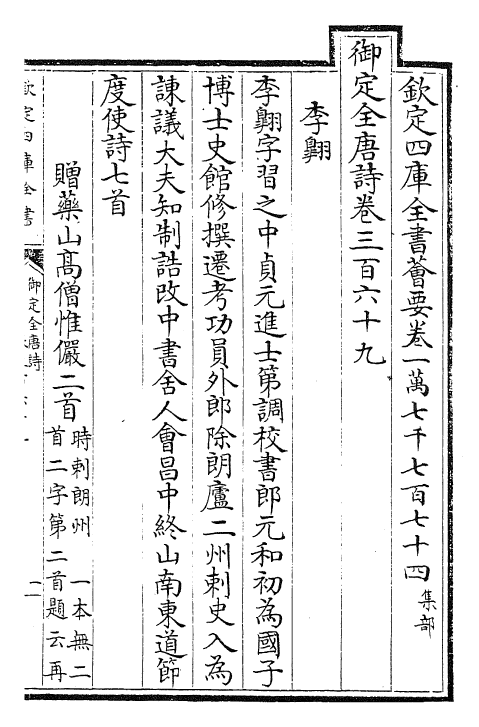 欽定四庫全書薈要卷一萬七千七百七十四 集部
御定全唐詩卷三百六十九
李翺
李翺字習之中貞元進士第調校書郎元和初為國子
博士史館修撰遷考功員外郎除朗廬二州刺史入為
諫議大夫知制誥改中書舍人會昌中終山南東道節
度使詩七首
贈藥山高僧惟儼二首 時刺朗州 一本無二
首二字第二首題云再
欽定四庫全書
御定全唐詩